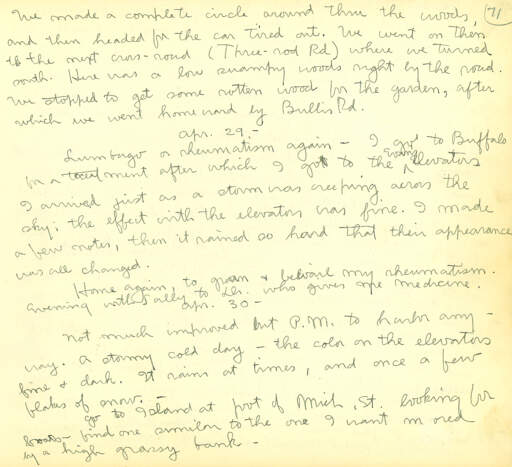 We made a complete circle around thru the woods, 71
and then headed for the car tired out. We went on then
to the next cross-road (Three-rod Rd) where we turned
south. Here was a low swampy woods right by the road.
We stopped to get some rotten wood for the garden, after
which we went homeward by Bullis Rd.
Apr. 29.-
Lumbago or rheumatism again - I go to Buffalo
for a treatment after which I got to the Evans elevators
I arrived just as a storm was creeping across the
sky; the effect with the elevators was fine. I made
a few notes, then it rained so hard that their appearance
was all changed.
Home again, to groan & bewail my rheumatism.
Evening with Sally to Dr. who gives me medicine.
Apr. 30 -
Not much improved but P.M. to harbor any-
way. A stormy cold day - the color on the elevators
fine & dark. It rains at times, and once a few
flakes of snow. -
Go to Island at foot of Mich. St. looking for
boats - find one similar to the one I want moored
by a high grassy bank -